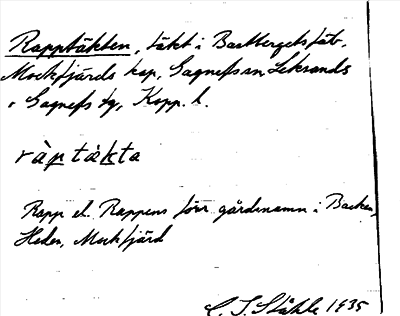 Rapptäkten, täkt i Backbergets fat.
Mockfjärds kap, Gagnefs sn Leksands
o Gagnefs tg, Kopp. l.
ràptækta
Rapp el. Rappens förr gårdsnamn i Backen,
Heden, Mockfjärd
C. I. Ståhle 1935